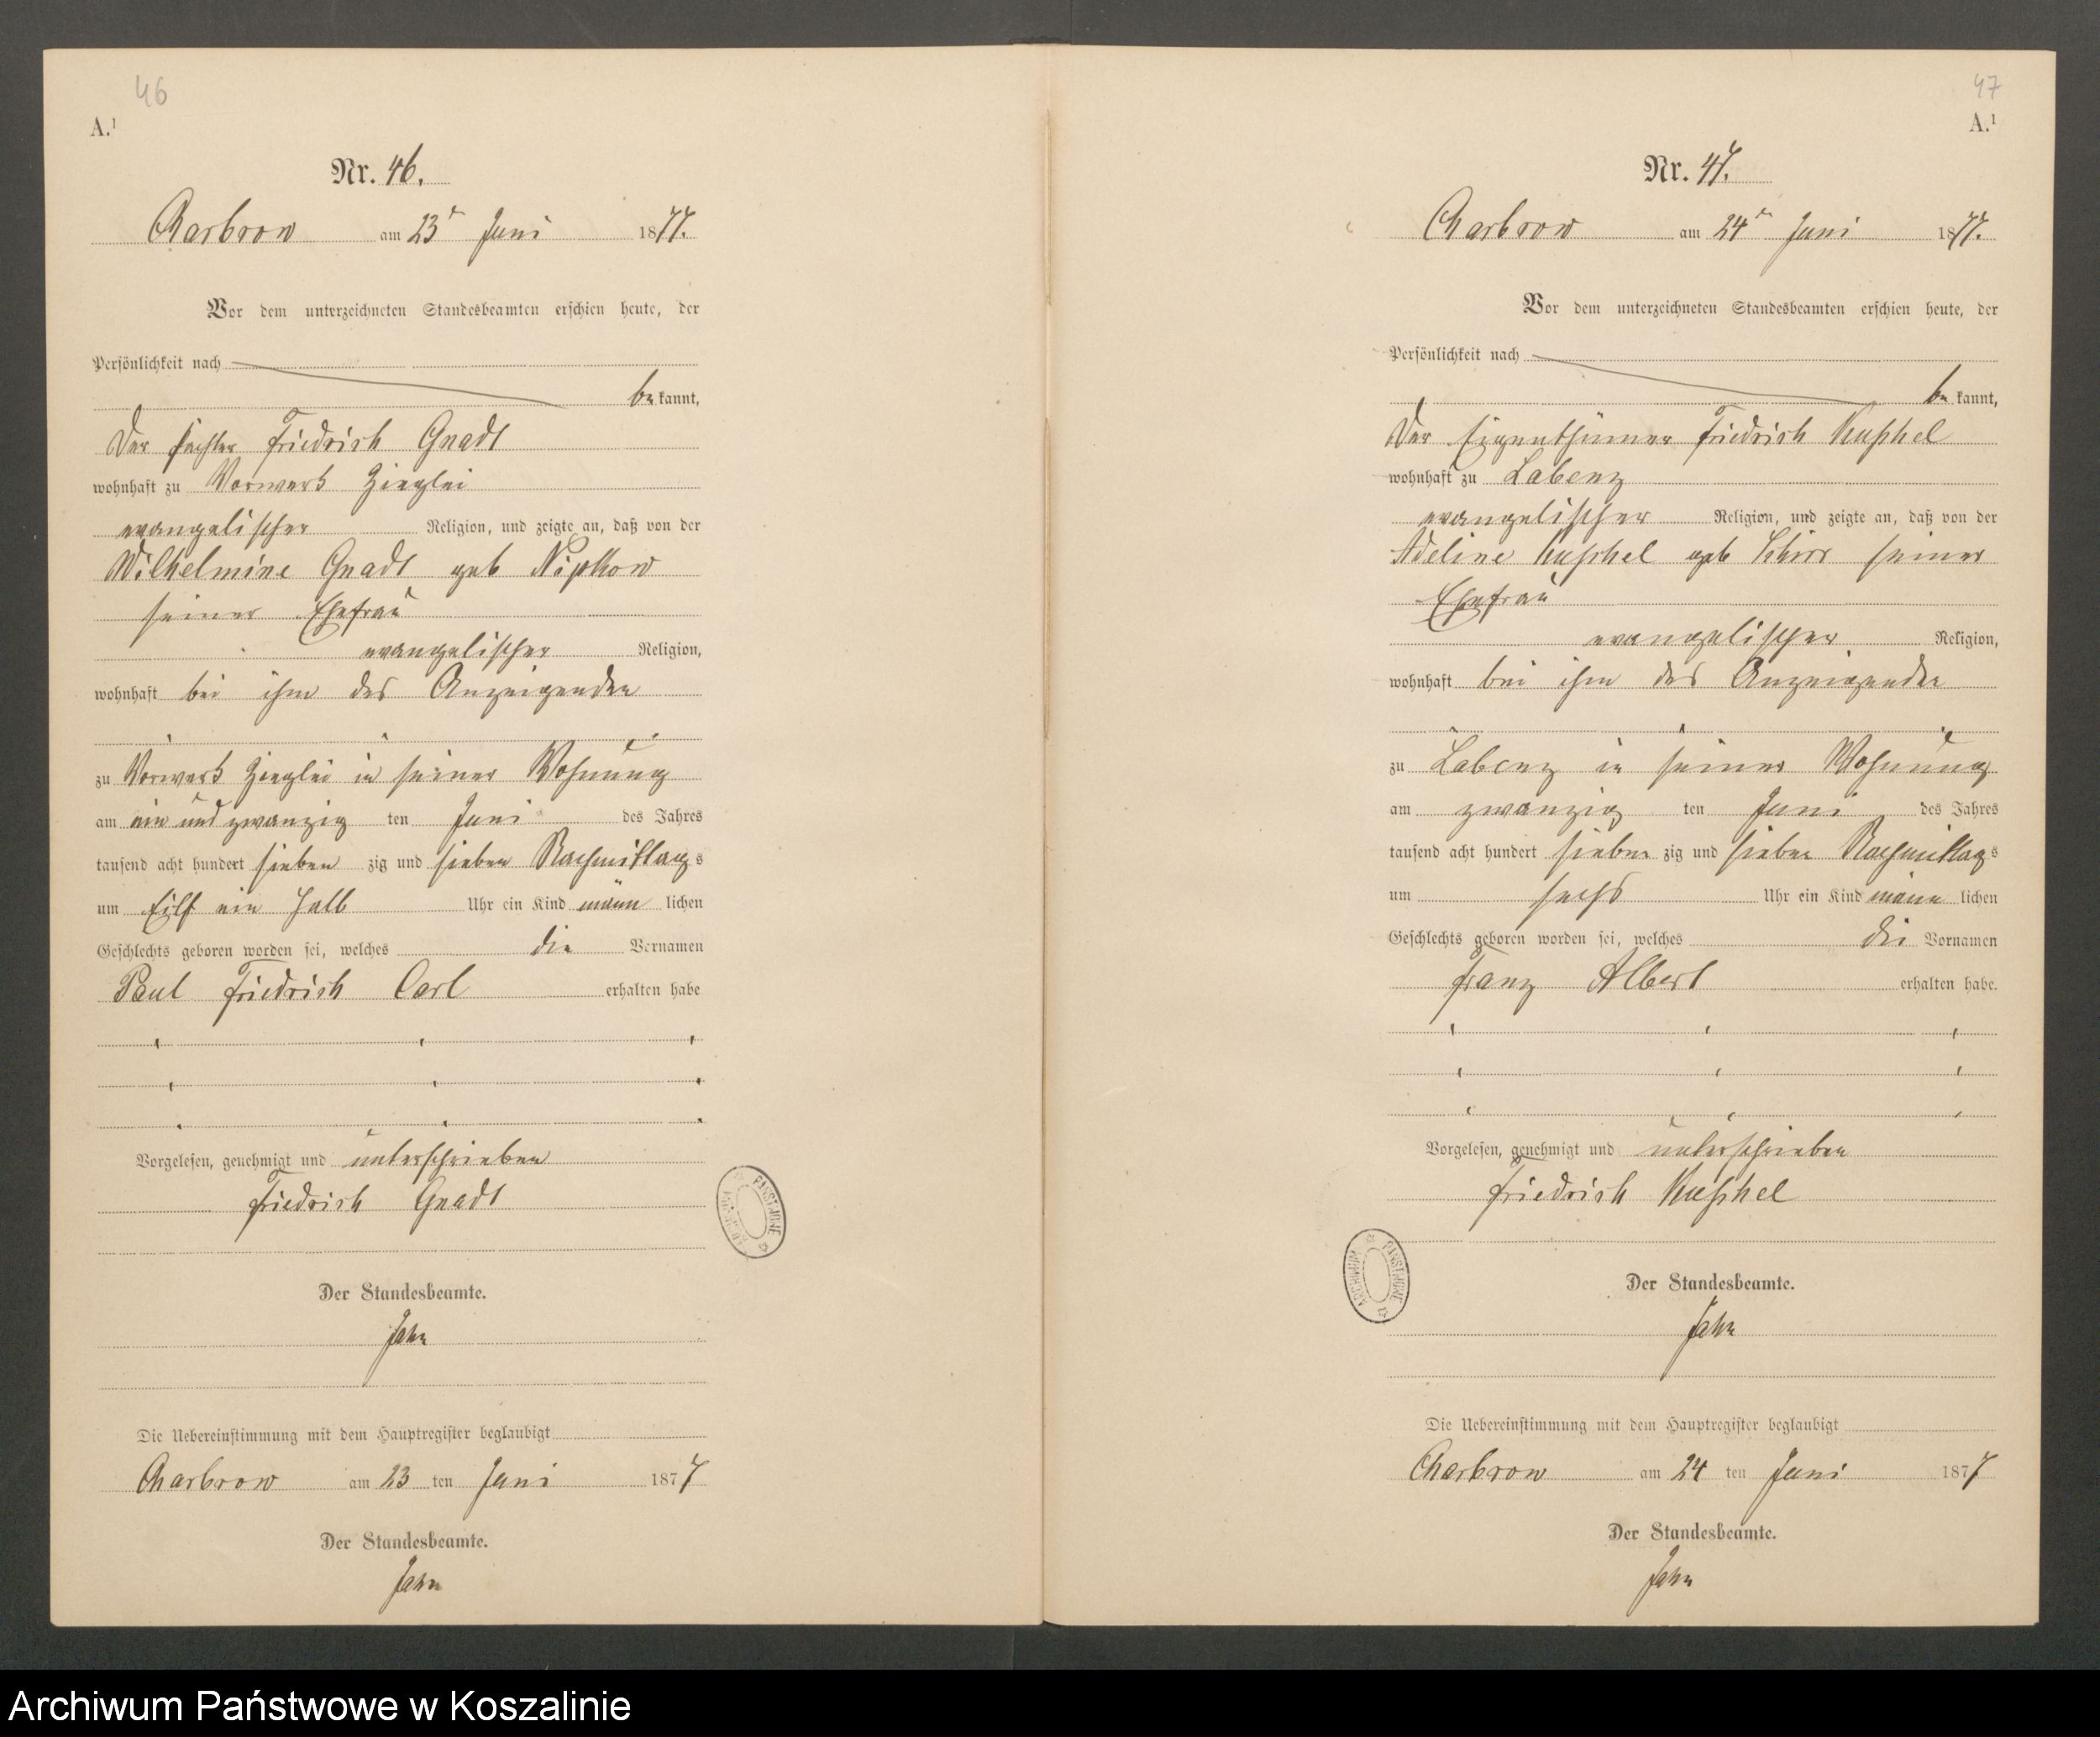 46
A.¹
Nr. 46.
Charbrow am 23ᵗ Juni 1877.
Vor dem unterzeichneten Standesbeamten erschien heute, der
Persönlichkeit nach
be kannt,
Der Friedrich Gnadt
wohnhaft zu Vorwerk Zieglei
evangelischer Religion, und zeigte an, daß von der
Wilhelmine Gnadt geb Nipkow
seiner Ehefrau
evangelischer Religion,
wohnhaft bei ihm des Anzeigenden
zu Vorwerk Zieglei in seiner Wohnung
am ein und zwanzig ten Juni des Jahres
tausend acht hundert sieben zig und sieben Nachmittag s
um Eilf ein halb Uhr ein Kind männ lichen
Geschlechts geboren worden sei, welches die Vornamen
Paul Friedrich Carl erhalten habe
Vorgelesen, genehmigt und unterschrieben
Friedrich Gnadt
Der Standesbeamte.
Jahn
Die Uebereinstimmung mit dem Hauptregister beglaubigt
Charbrow am 23 ten Juni 1877
Der Standesbeamte.
Jahn
ARCHIWUM PAŃSTWOWE
47
A.¹
Nr. 47.
Charbrow am 24ᵗ Juni 1877.
Vor dem unterzeichneten Standesbeamten erschien heute, der
Persönlichkeit nach
be kannt,
Der Eigenthümer Friedrich Kuschel
wohnhaft zu Labenz
evangelischer Religion, und zeigte an, daß von der
Adeline Kuschel geb Schirr seiner
Ehefrau
evangelischer Religion,
wohnhaft bei ihm des Anzeigenden
zu Labenz in seiner Wohnung
am zwanzig ten Juni des Jahres
tausend acht hundert sieben zig und sieben Nachmittag s
um sechs Uhr ein Kind männ lichen
Geschlechts geboren worden sei, welches die Vornamen
Franz Albert erhalten habe.
Vorgelesen, genehmigt und unterschrieben
Friedrich Kuschel
Der Standesbeamte.
Jahn
Die Uebereinstimmung mit dem Hauptregister beglaubigt
Charbrow am 24 ten Juni 1877
Der Standesbeamte.
Jahn
ARCHIWUM PAŃSTWOWE
Archiwum Państwowe w Koszalinie